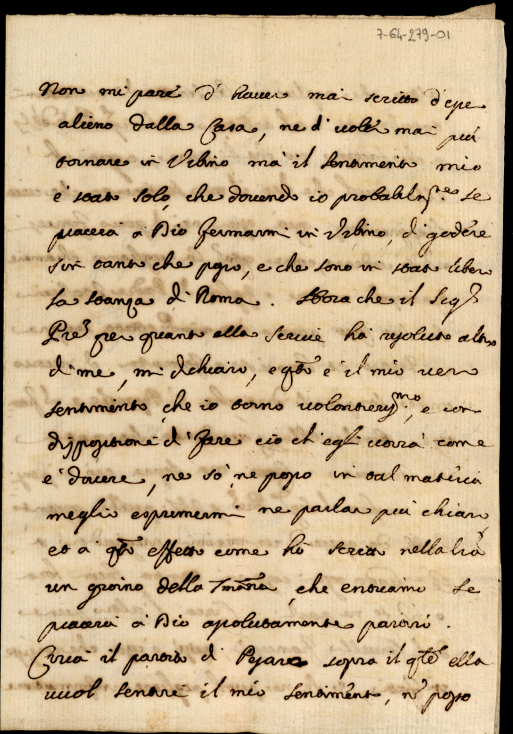 7-64-279-01
Non mi pare d'haver mai scritto d'esse
alieno dalla Casa, ne di voler mai più
tornare in Urbino ma il sentimento mio
è stato solo, che dovendo io probabilm.te se
piacerà a Dio fermarmi in Urbino, di godere
sin tanto che posso, e che sono in stato liber
la stanza di Roma. Hora che il Sig.r
Pre.s per quanto ella scrive ha resoluto altro
di me, mi dichiaro, e q.to è il mio vero
sentimento che io torno volontieriss.mo, e con
dispositione di fare ciò ch'egli vorrà come
è dovere, ne so ne posso in tal materia
meglio esprimermi ne parlar più chiaro
et a q.to effetto come ho scritto nella
un giorno della 7mana, che entriamo se
piacerà a Dio asolutamente partirò.
Circa il partito di Pesaro sopra il q.le ella
vuol sentire il mio sentimento, non posso